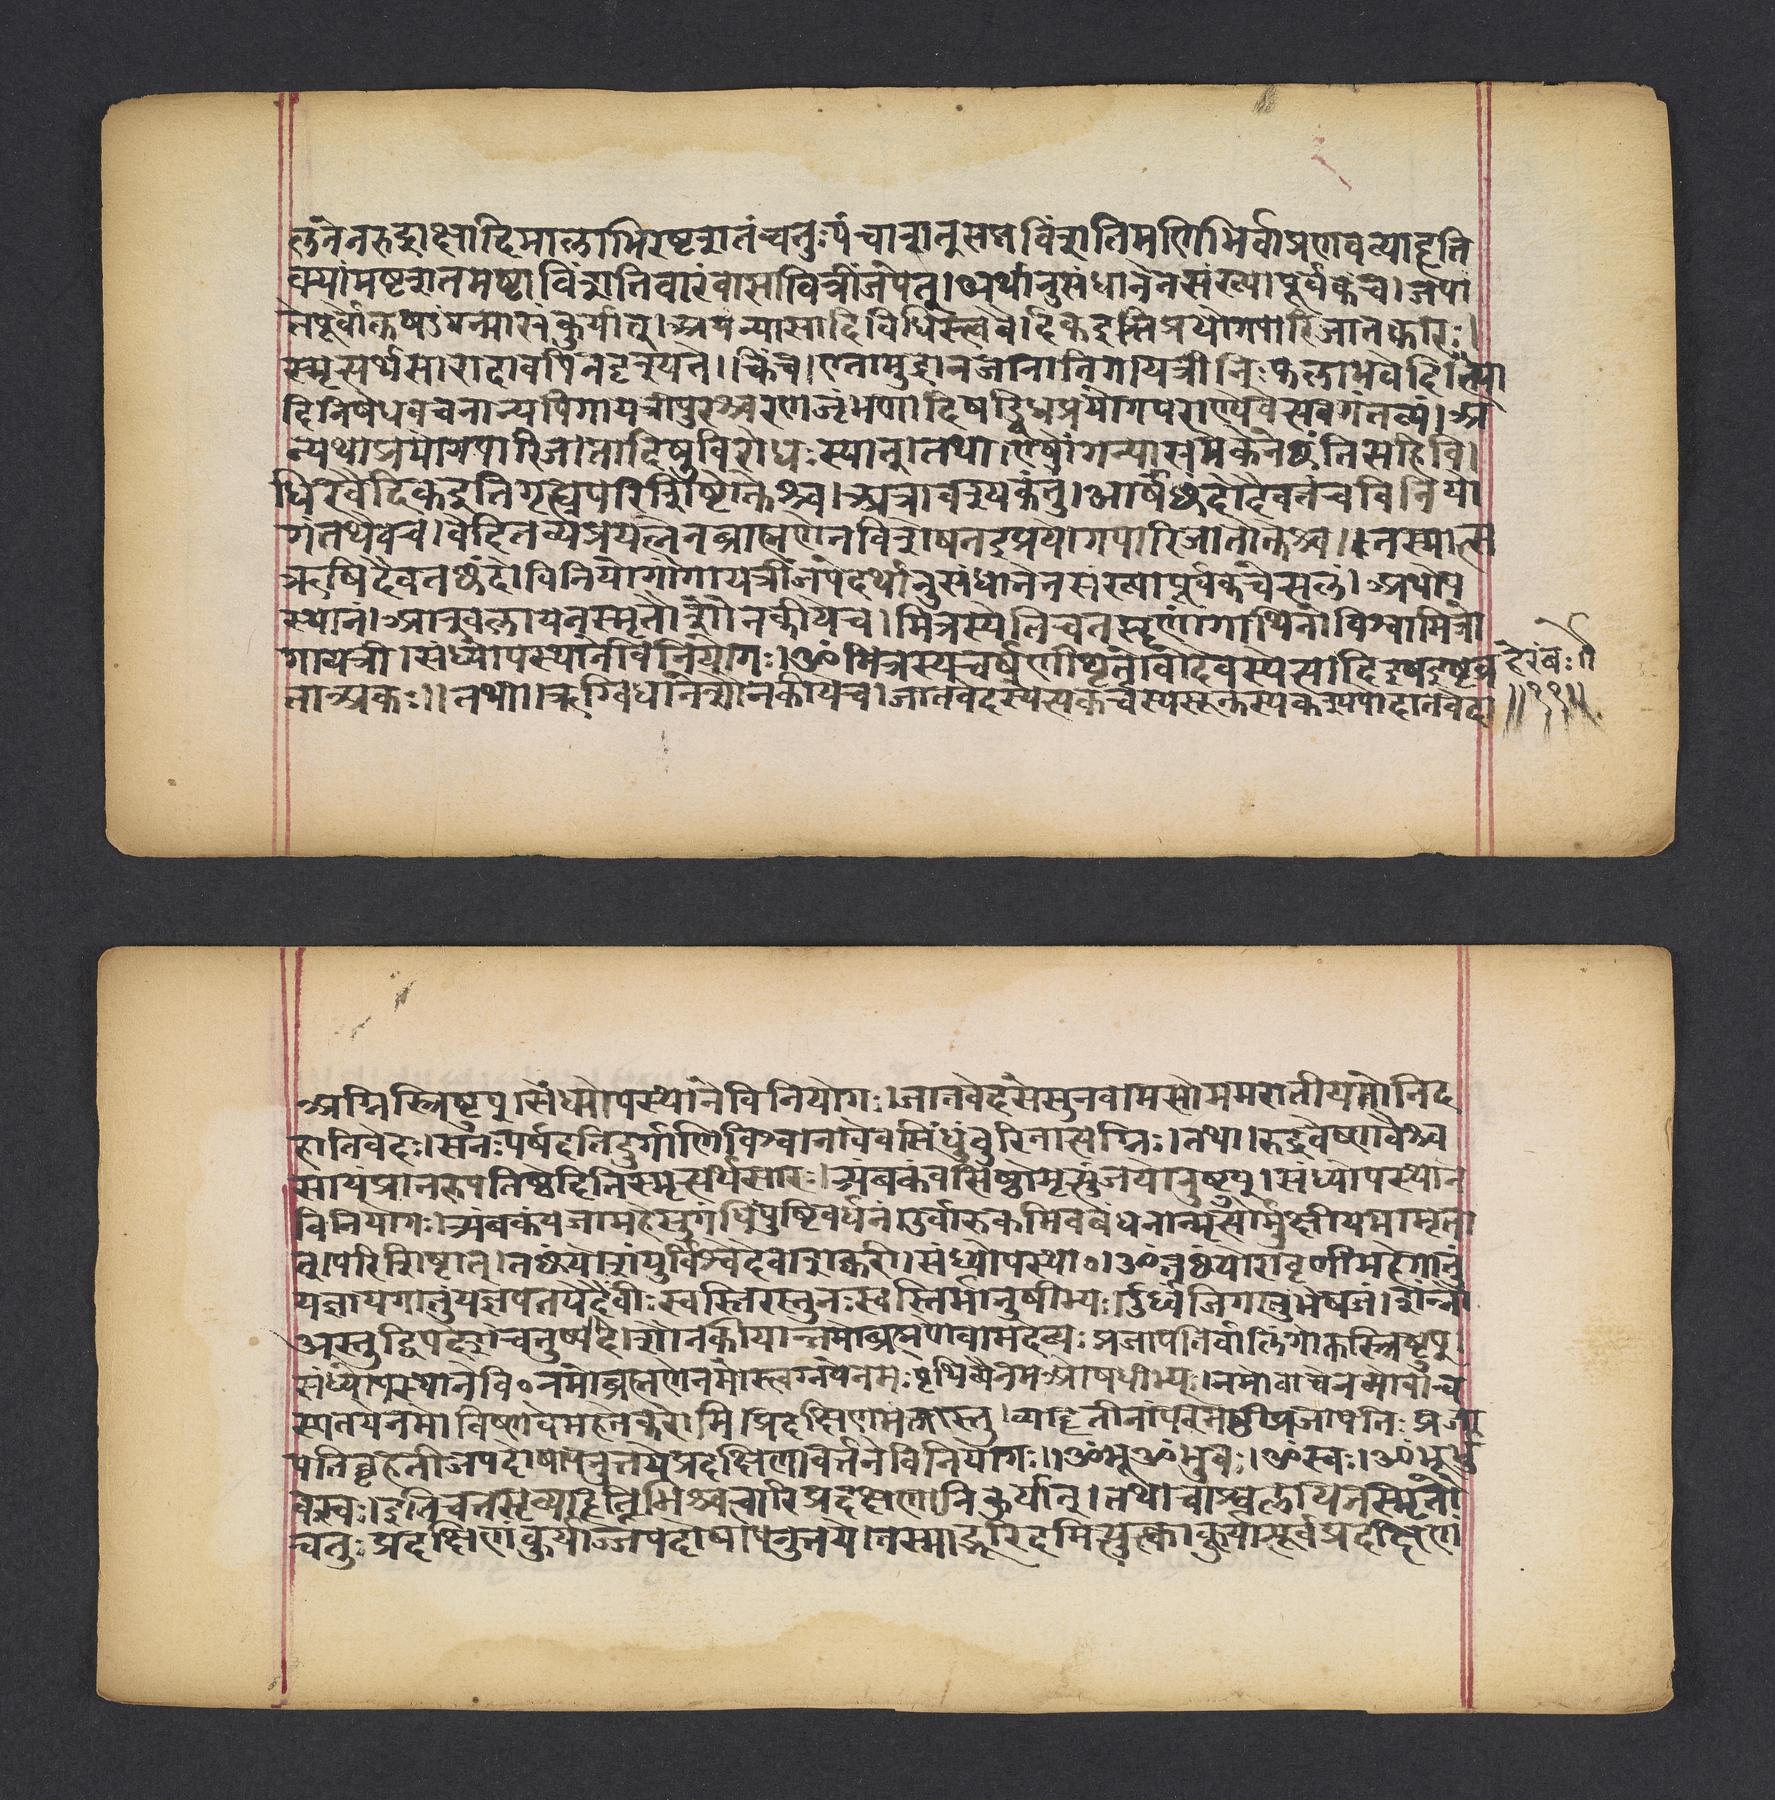 लंनेनरुद्राक्षादिमालाभिरष्टशतंचतुःपंचाशत्सप्तविंशतिमणिभिर्वाप्रणवव्याहृति
क्यांमष्टशतमष्टाविंशतिवारंवासावित्रींजपेत्।अर्थानुसंधानेनसंख्यापूर्वकंच।जपां
तेपूर्वोक्तषडंगन्यासंकुर्यात्।अयंन्यासादिविधिस्त्ववैदिकइतिप्रयोगपारिजातकारः।
स्मृत्यर्थसारादावपिनदृश्यते।किंच।एतामुद्रानजानातिगायत्रीनिःफलाभवेदित्या
दिनिषेधवचनान्यपिगायत्रीपुरश्चरणजृंभणादिषड्विधप्रयोगपराण्येवेत्यवगंतव्यं।अ
न्यथाप्रयोगपारिजातादिषुविरोधःस्यात्।तथा।एषांगन्यासमेकेनेछंतिसहिवि।
धिरवैदिकइतिगृह्यपरिशिष्टोक्तेश्च।अत्रावश्यकंतु।आर्षंछंदोदैवतंचविनियो
गंतथैवच।वेदितव्यंप्रयत्नेनब्राह्मणेनविशेषतइप्रयोगपारिजातोक्तेश्च।।तस्मात्स
ऋषिदैवतछंदोविनियोगांगायत्रींजपेदर्थानुसंधानेनसंख्यापूर्वकंचेत्यलं।अथोप
स्थानं।आश्वलायनस्मृतौशौनकीयेच।मित्रस्येतिचतसृणांगाथिनोविश्वामित्रो
गायत्री।संध्योपस्थानेविनियोगः।ॐमित्रस्यचर्षणीधृतोवोदेवस्यसादिइयइष्टव
हेरंबः॥
ताऋकः।।तथा।ऋग्विधानेशौनकीयेच।जातवेदस्येत्येकर्चस्यसूक्तस्यकश्यपोजातवेदा
॥११॥
अग्निस्त्रिष्टुप्।संध्योपस्थानेविनियोगः।जातवेदसेसुनवामसोममरातीयतोनिद
हातिवेदः।सनःपर्षदतिदुर्गाणिविश्वानावेवसिंधुंदुरितात्यग्निः।तथा।रुद्रवैष्णवैश्च
सायंप्रातरुपतिष्ठेदितिस्मृत्यर्थसारः।त्र्यंबकंवसिष्ठोमृत्युंजयोनुष्टुप्।संध्योपस्थाने
विनियोगः।त्र्यंबकंयजामहेसुगंधिंपुष्टिवर्धनं।उर्वारुकमिवबंधनान्मृत्योर्मुक्षीयमामृता
त्।परिशिष्टात्।तछंयोशंयुर्विश्वेदेवाशक्वरी।संध्योपस्था॰।ॐतछंयोरावृणीमहेगातुं
यज्ञायगातुंयज्ञपतयेदैवीःस्वस्तिरस्तुनःस्वस्तिर्मानुषेभ्यः।ऊर्ध्वंजिगातुभेषजं।शंनो
अस्तुद्विपदेशंचतुष्पदे।शौनकीयान्नमोब्रह्मणेवामदेव्यःप्रजापतिर्वालिंगोक्तास्त्रिष्टुप्।
संध्योपस्थानेवि॰नमोब्रह्मणेनमोस्त्वग्नयेनमःपृथिव्यैनमओषधीभ्यः।नमोवाचेनमोवाच
स्पतयेनमोविष्णवेमहतेकरोमि।प्रदक्षिणमंत्रास्तु।व्याहृतीनांपरमेष्ठीप्रजापतिःप्रजा
पतिर्बृहतीजपदोषापनुत्तयेप्रदक्षिणावर्तनेविनियोगः।।ॐभूॐभुवः।ॐस्वः।ॐभूर्भु
वःस्वः।इतिचतसृव्याहृतिभिश्चत्वारिप्रदक्षिणानिकुर्यात्।तथाचाश्वलायनस्मृतौ
चतुःप्रदक्षिणंकुर्याज्जपदोषापनुत्तये।तस्माद्भूरिदमित्युक्त्वाकुर्यात्पूर्वंप्रदक्षिणां